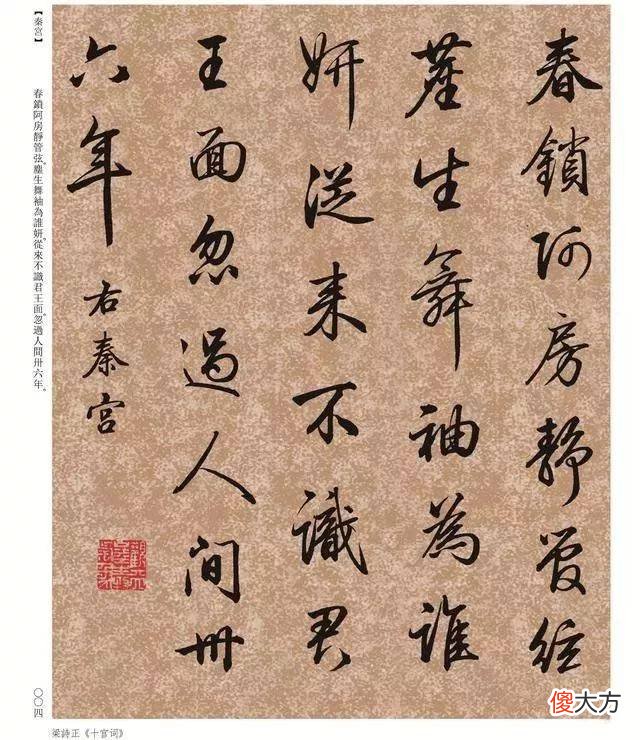 春鎖阿房靜管絃
塵生舞袖為誰
妍從来不識君
王面忽過人间卅
六年
右秦宮
【秦宮】
春鎖阿房靜管弦。塵生舞袖為誰妍。從來不識君王面。忽過人間卅六年。
〇〇四
梁詩正《十宫词》
傻大方